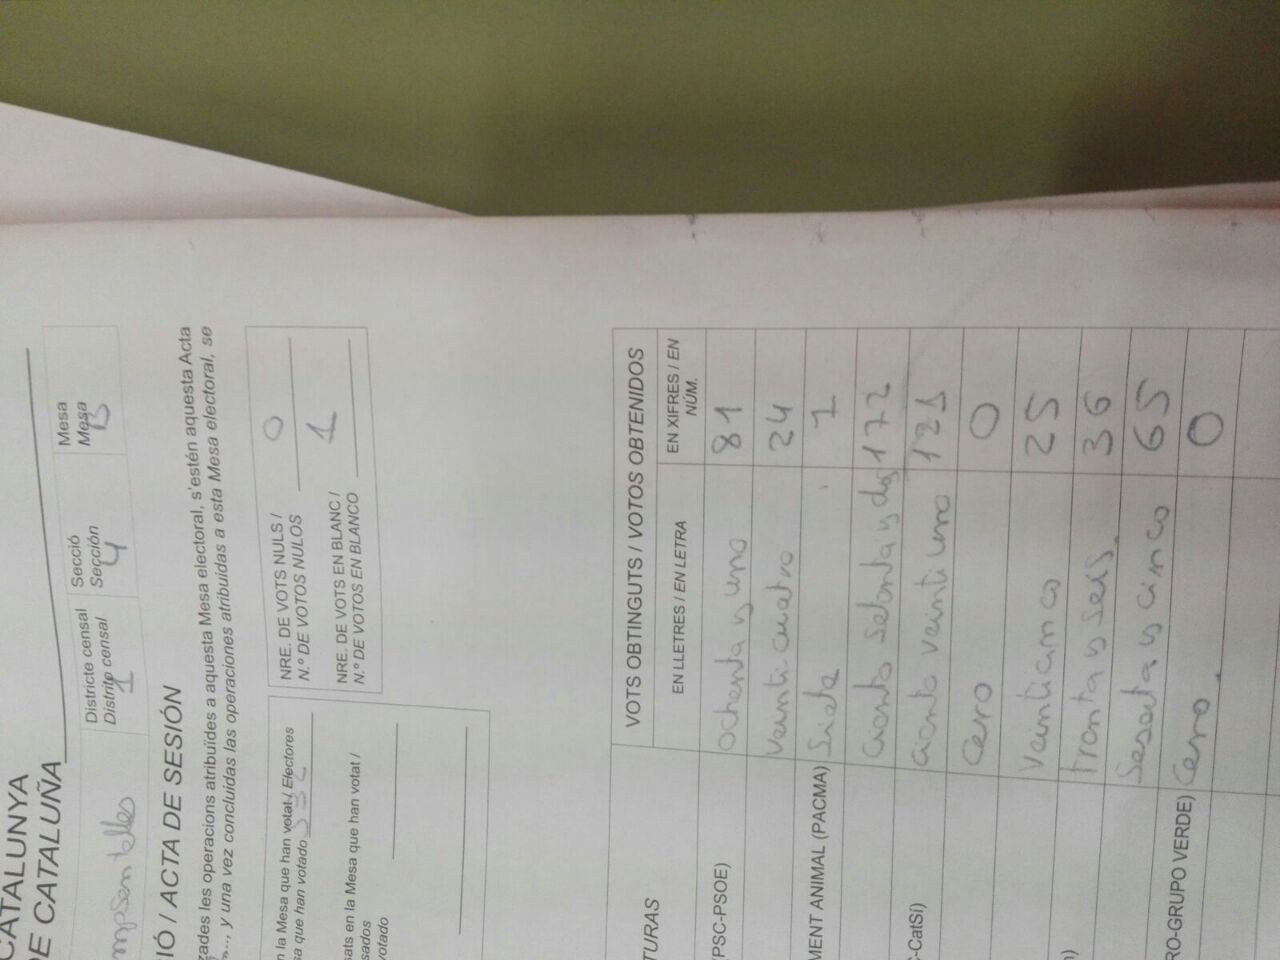 CATALUNYA
DE CATALUÑA
Districte censal
Distrito censal
1
Secció
Sección
4
Mesa
Mesa
B
IÓ / ACTA DE SESIÓN
zades les operacions atribuïdes a aquesta Mesa electoral, s'estén aquesta Acta
..., y una vez concluidas las operaciones atribuidas a esta Mesa electoral, se
n la Mesa que han votat / Electores
sa que han votado 532
sats en la Mesa que han votat /
sados
votado
NRE. DE VOTS NULS /
N.º DE VOTOS NULOS 0
NRE. DE VOTS EN BLANC /
N.º DE VOTOS EN BLANCO 1
TURAS
VOTS OBTINGUTS / VOTOS OBTENIDOS
EN LLETRES / EN LETRA
EN XIFRES / EN
NÚM.
(PSC-PSOE) ochenta y uno 81
Veinti cuatro 24
MENT ANIMAL (PACMA) Siete 7
Ciento setenta y dos 172
C-CatSí) Ciento veinti uno 121
Cero 0
Veinticinco 25
Treinta y seis. 36
Sesenta y cinco 65
RO-GRUPO VERDE) Cero. 0